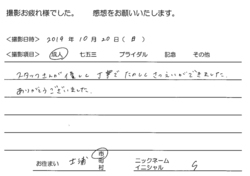 撮影お疲れ様でした。 感想をお願いいたします。
<撮影日時> 2019年 10月 20日 (日)
<撮影項目> 成人 七五三 ブライダル 記念 その他
スタッフさんが優しく 丁寧で たのしく さつえいができました。
ありがとうございました。
市
お住まい 土浦 町 ニックネーム
村 イニシャル G